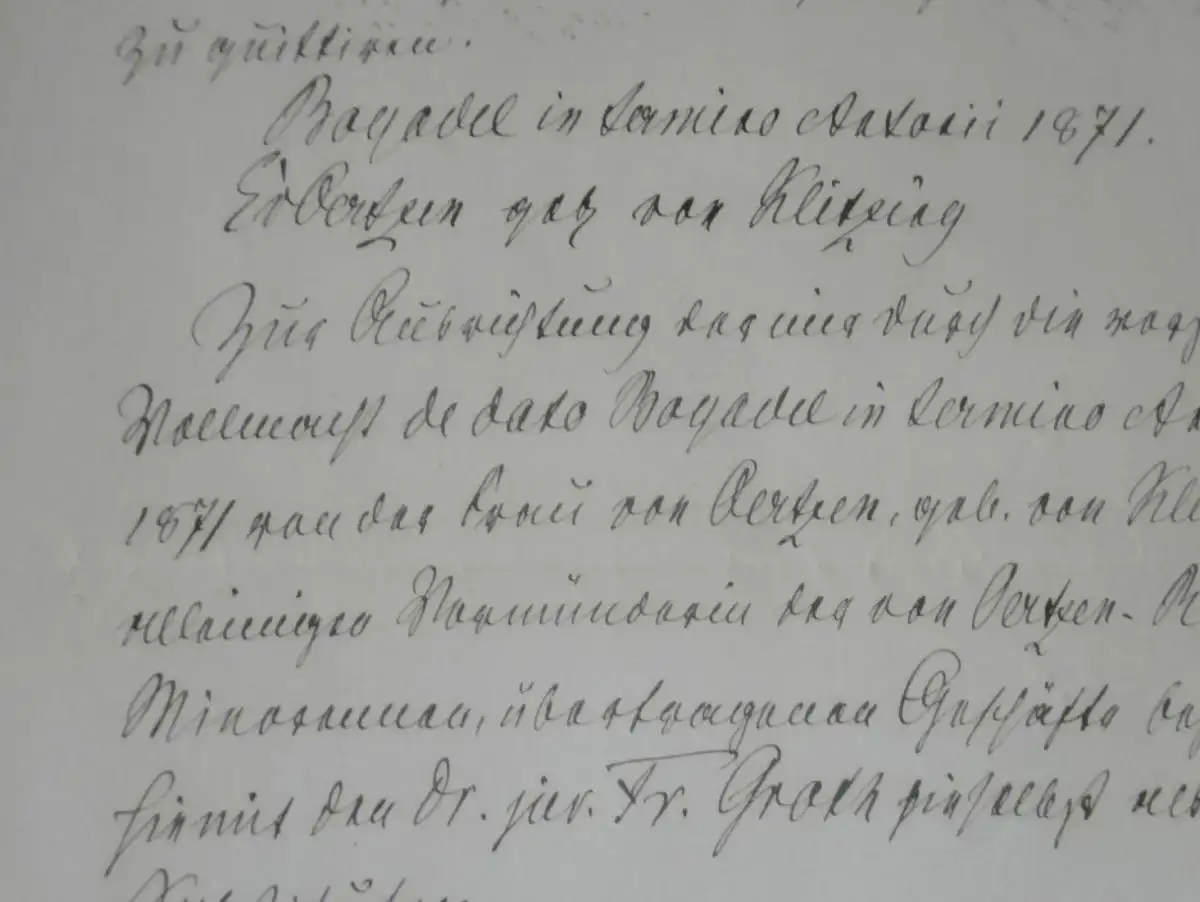 zu quittiren.
Bogadel in termino Antonii 1871.
von Klitzing
Zur Ausrichtung der mir durch die
Vollmacht de dato Bogadel in termino
1871 von der Frau von Oertzen, geb. von
alleinigen Vormünderin der von Oertzen-
Minorennen, übertragenen Geschäfte
hiemit den Dr. jur. Fr. Groth hieselbst als